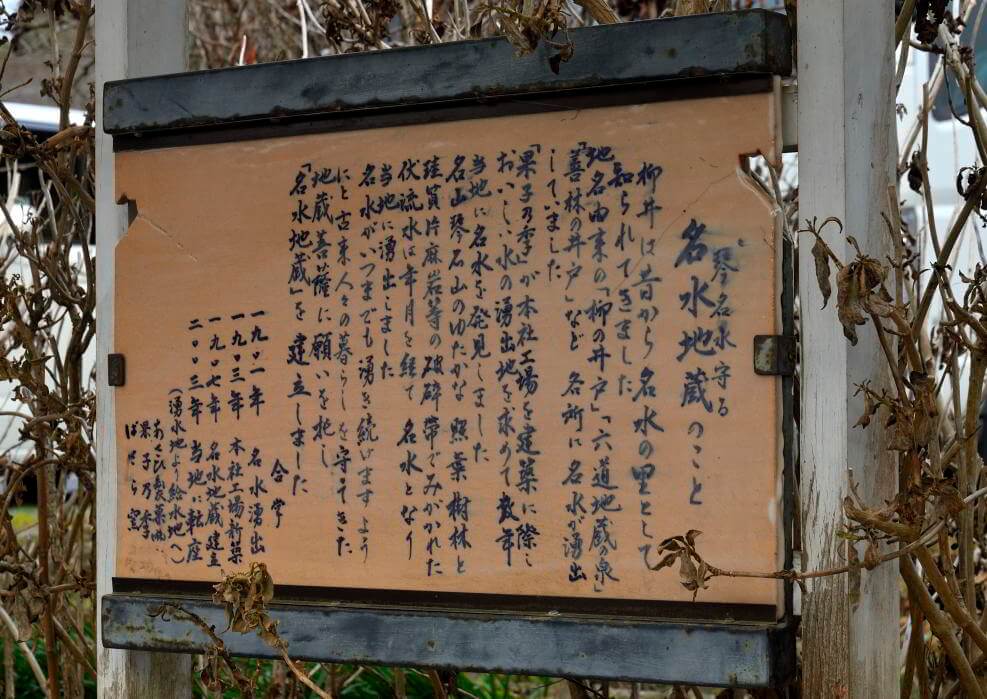 琴名水守る
名水地蔵のこと
柳井は昔から名水の里として
知られてきました
地名由来の「柳の井戸」「六道地蔵の泉」
「善林の井戸」など 各所に名水が湧出
していました
「果子乃季」が本社工場を建築に際し
おいしい水の湧出地を求めて数年
当地に名水を発見しました
名山琴石山のゆたかな 照葉樹林と
珪質片麻岩等の破砕帯でみがかれた
伏流水は年月を経て 名水となり
当地に湧出しました
名水がいつまでも湧き続けますよう
にと古来人々の暮らしを守ってきた
「地蔵菩薩に願いを託し
「名水地蔵」を 建立しました
合掌
一九〇一年 名水湧出
一九〇三年 本社工場新築
一九〇七年 名水地蔵建立
二〇〇三年 当地に転座
(湧水地より給水地へ)
あさひ製菓
果子乃季